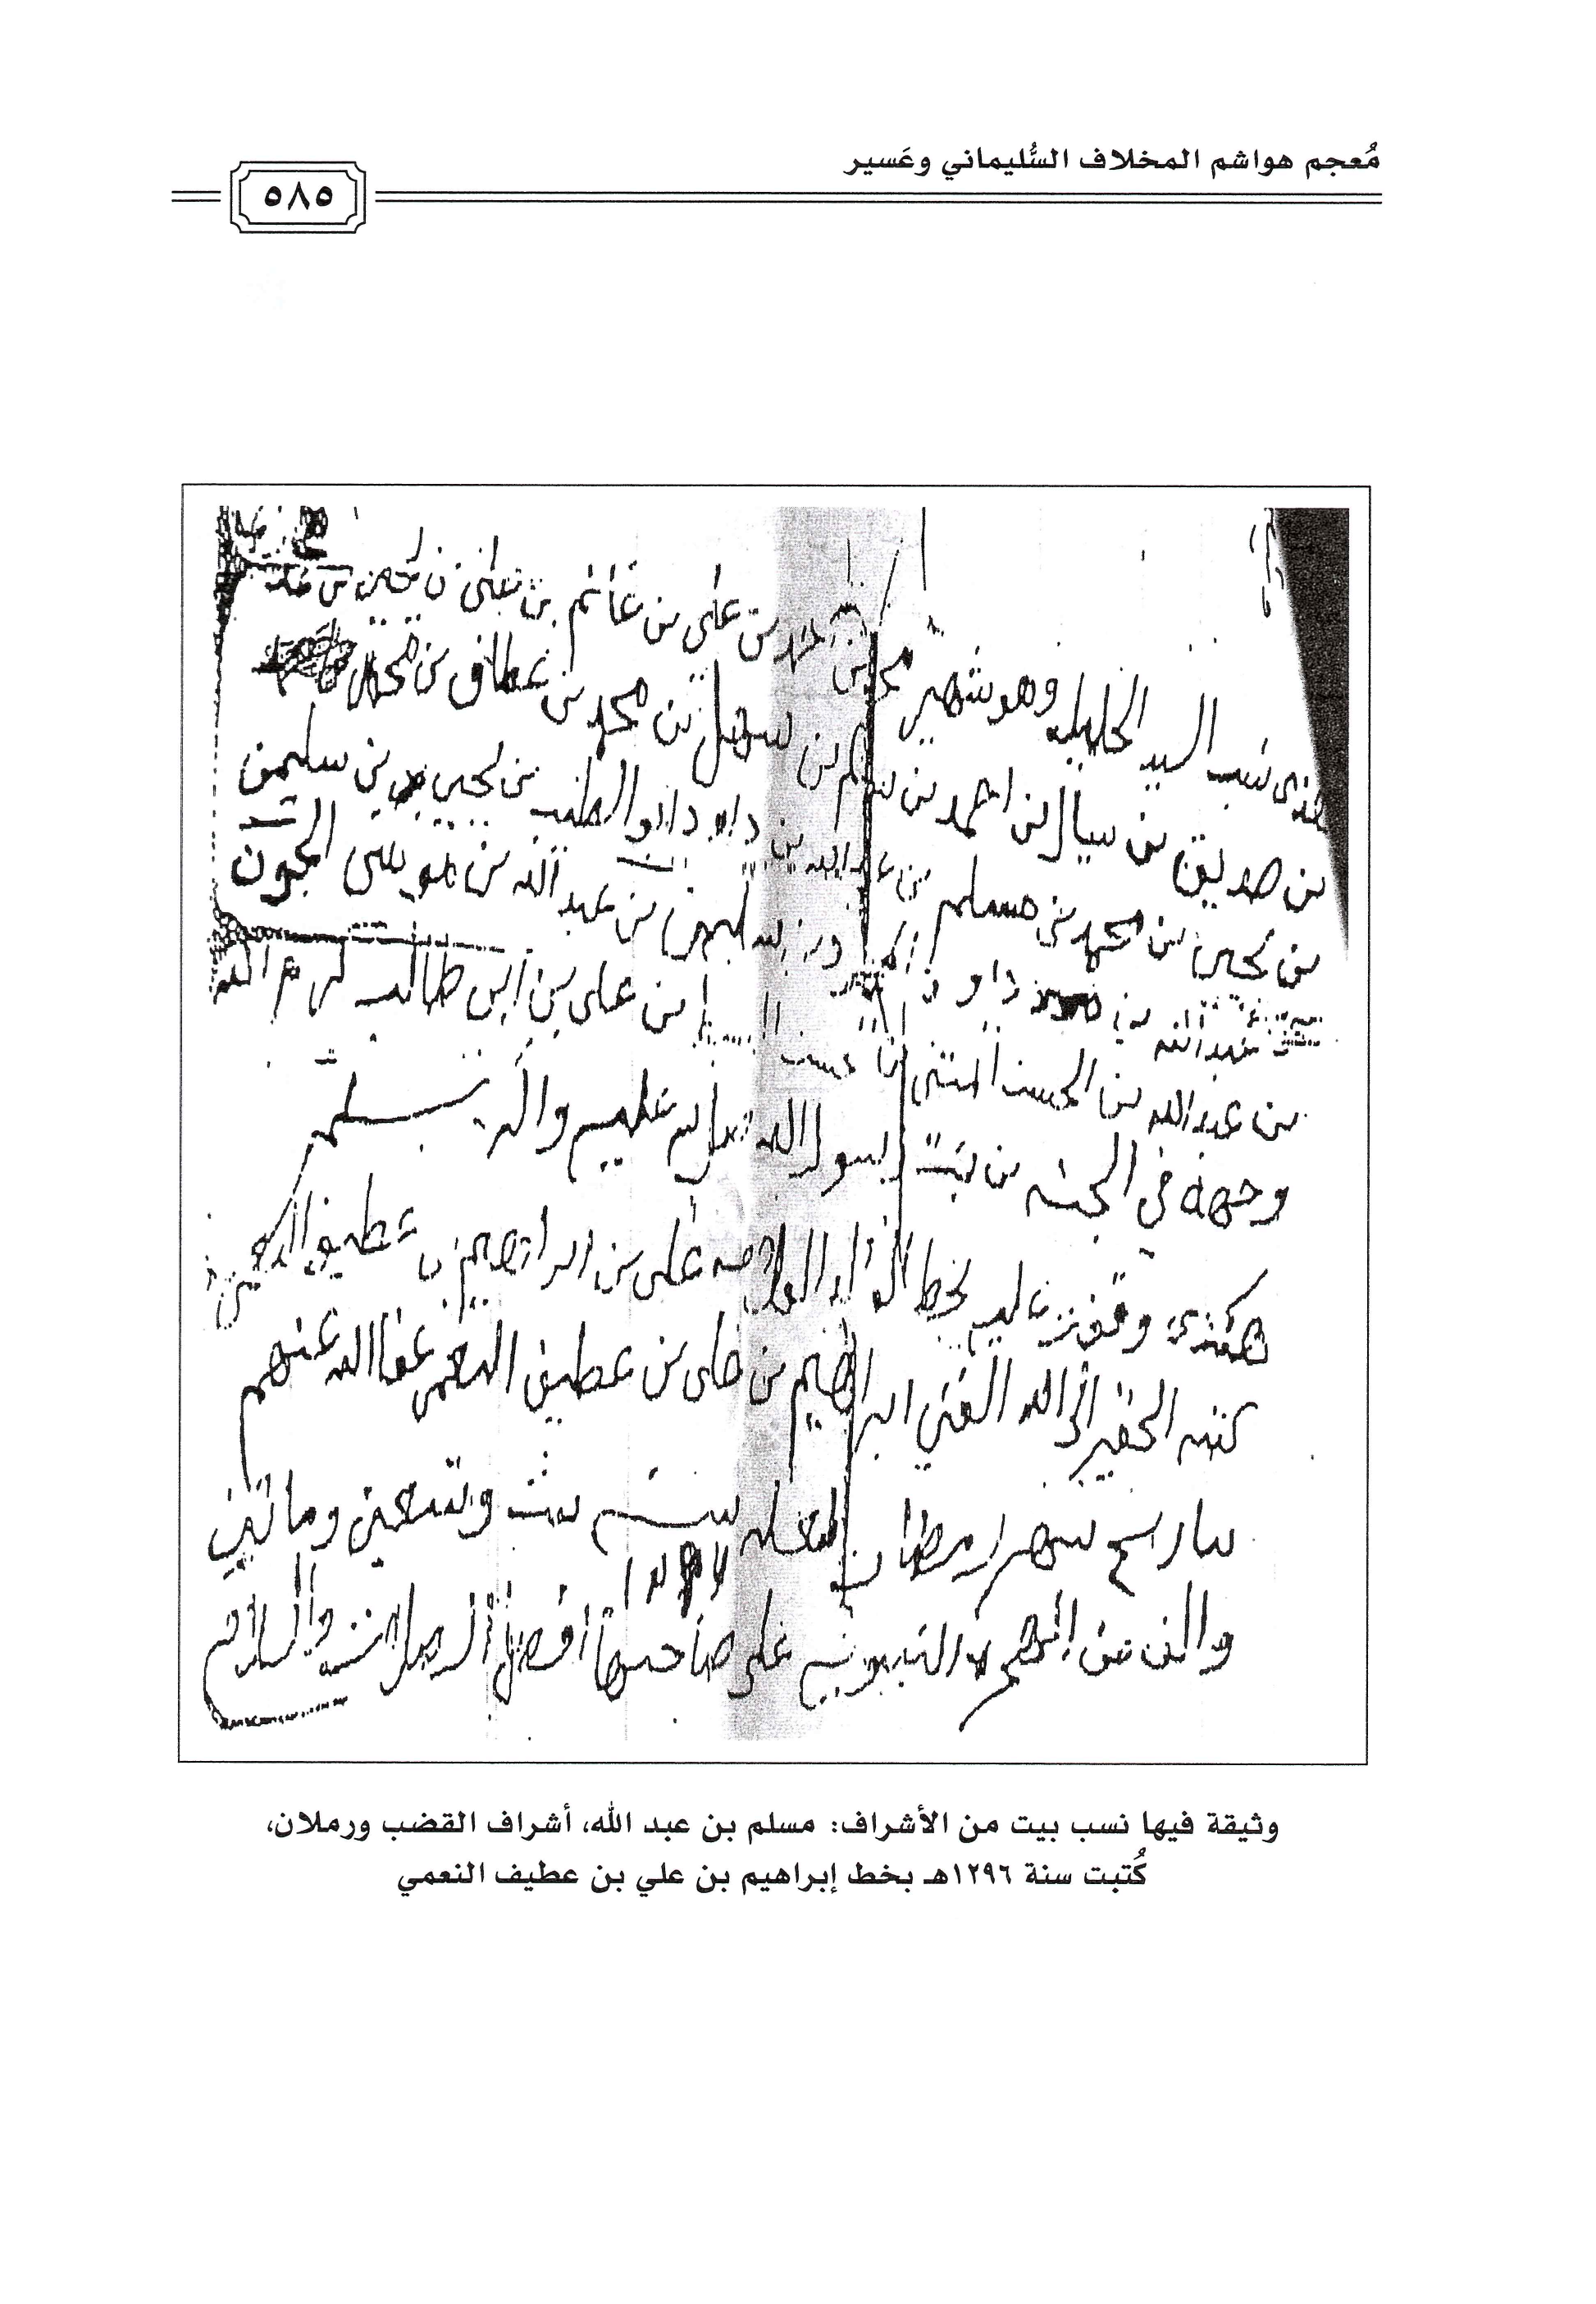 مُعجم هواشم المخلاف السُّليماني وعَسير
٥٨٥
بن علي بن غانم بن
نسب السيد وهو شهير
بن صديق بن احمد بن بن سهل بن محمد بن عطاف بن
بن يحيى بن محمد بن مسلم بن عبدالله بن داود ابو الطيب بن يحيى بن سليمن
عبدالله بن داود بن سليمن بن عبد الله بن موسى الجون
بن عبدالله بن الحسن المثنى بن علي بن ابي طالب كرم الله
وجهه في الجنه بن بنت رسول الله عليه واله وسلم
هكذى وقفت عليه بخط علي بن ابراهيم بن عطيف النعمي
كتبه الحقير الى الله الغني ابراهيم بن علي بن عطيف النعمي عفا الله عنهم
بتاريخ شهر رمضان المعظم سنة ست وتسعين وماتين
١٢٩٦
والف من الهجرة النبوية على صاحبها افضل الصلاة والسلام
وثيقة فيها نسب بيت من الأشراف: مسلم بن عبد الله، أشراف القضب ورملان،
كُتبت سنة ١٢٩٦هـ بخط إبراهيم بن علي بن عطيف النعمي